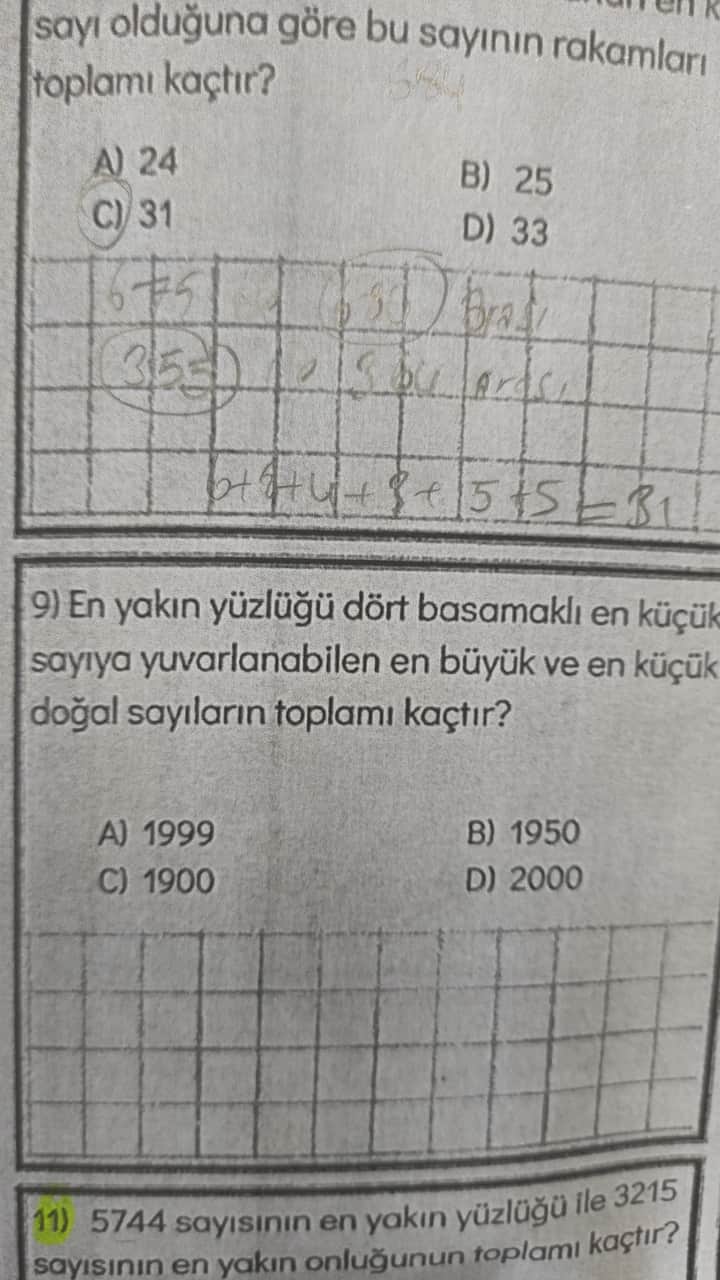 sayı olduğuna göre bu sayının rakamları
toplamı kaçtır?
A) 24
B) 25
C) 31
D) 33
355
6+8+4+8+5+5=31
9) En yakın yüzlüğü dört basamaklı en küçük
sayıya yuvarlanabilen en büyük ve en küçük
doğal sayıların toplamı kaçtır?
A) 1999
B) 1950
C) 1900
D) 2000
11) 5744 sayısının en yakın yüzlüğü ile 3215
sayısının en yakın onluğunun toplamı kaçtır?